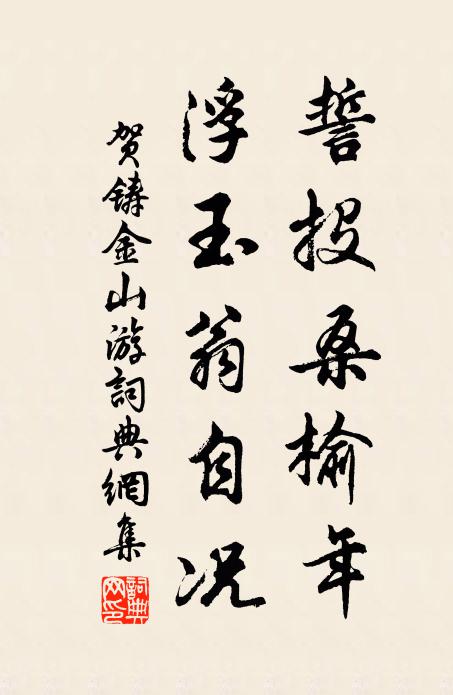 誓投桑榆年
浮玉翁自况
贺铸金山游詞典網集
詞典网印